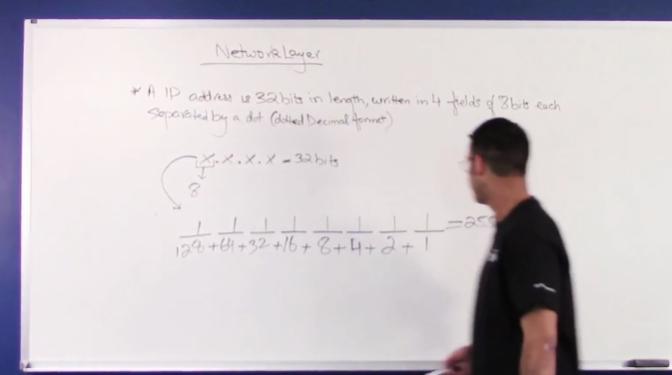 Network Layer
* A IP address is 32 bits in length, written in 4 fields of 8 bits each
separated by a dot (dotted Decimal format)
X . X . X . X = 32 bits
8
1 1 1 1 1 1 1 1 = 255
128 + 64 + 32 + 16 + 8 + 4 + 2 + 1